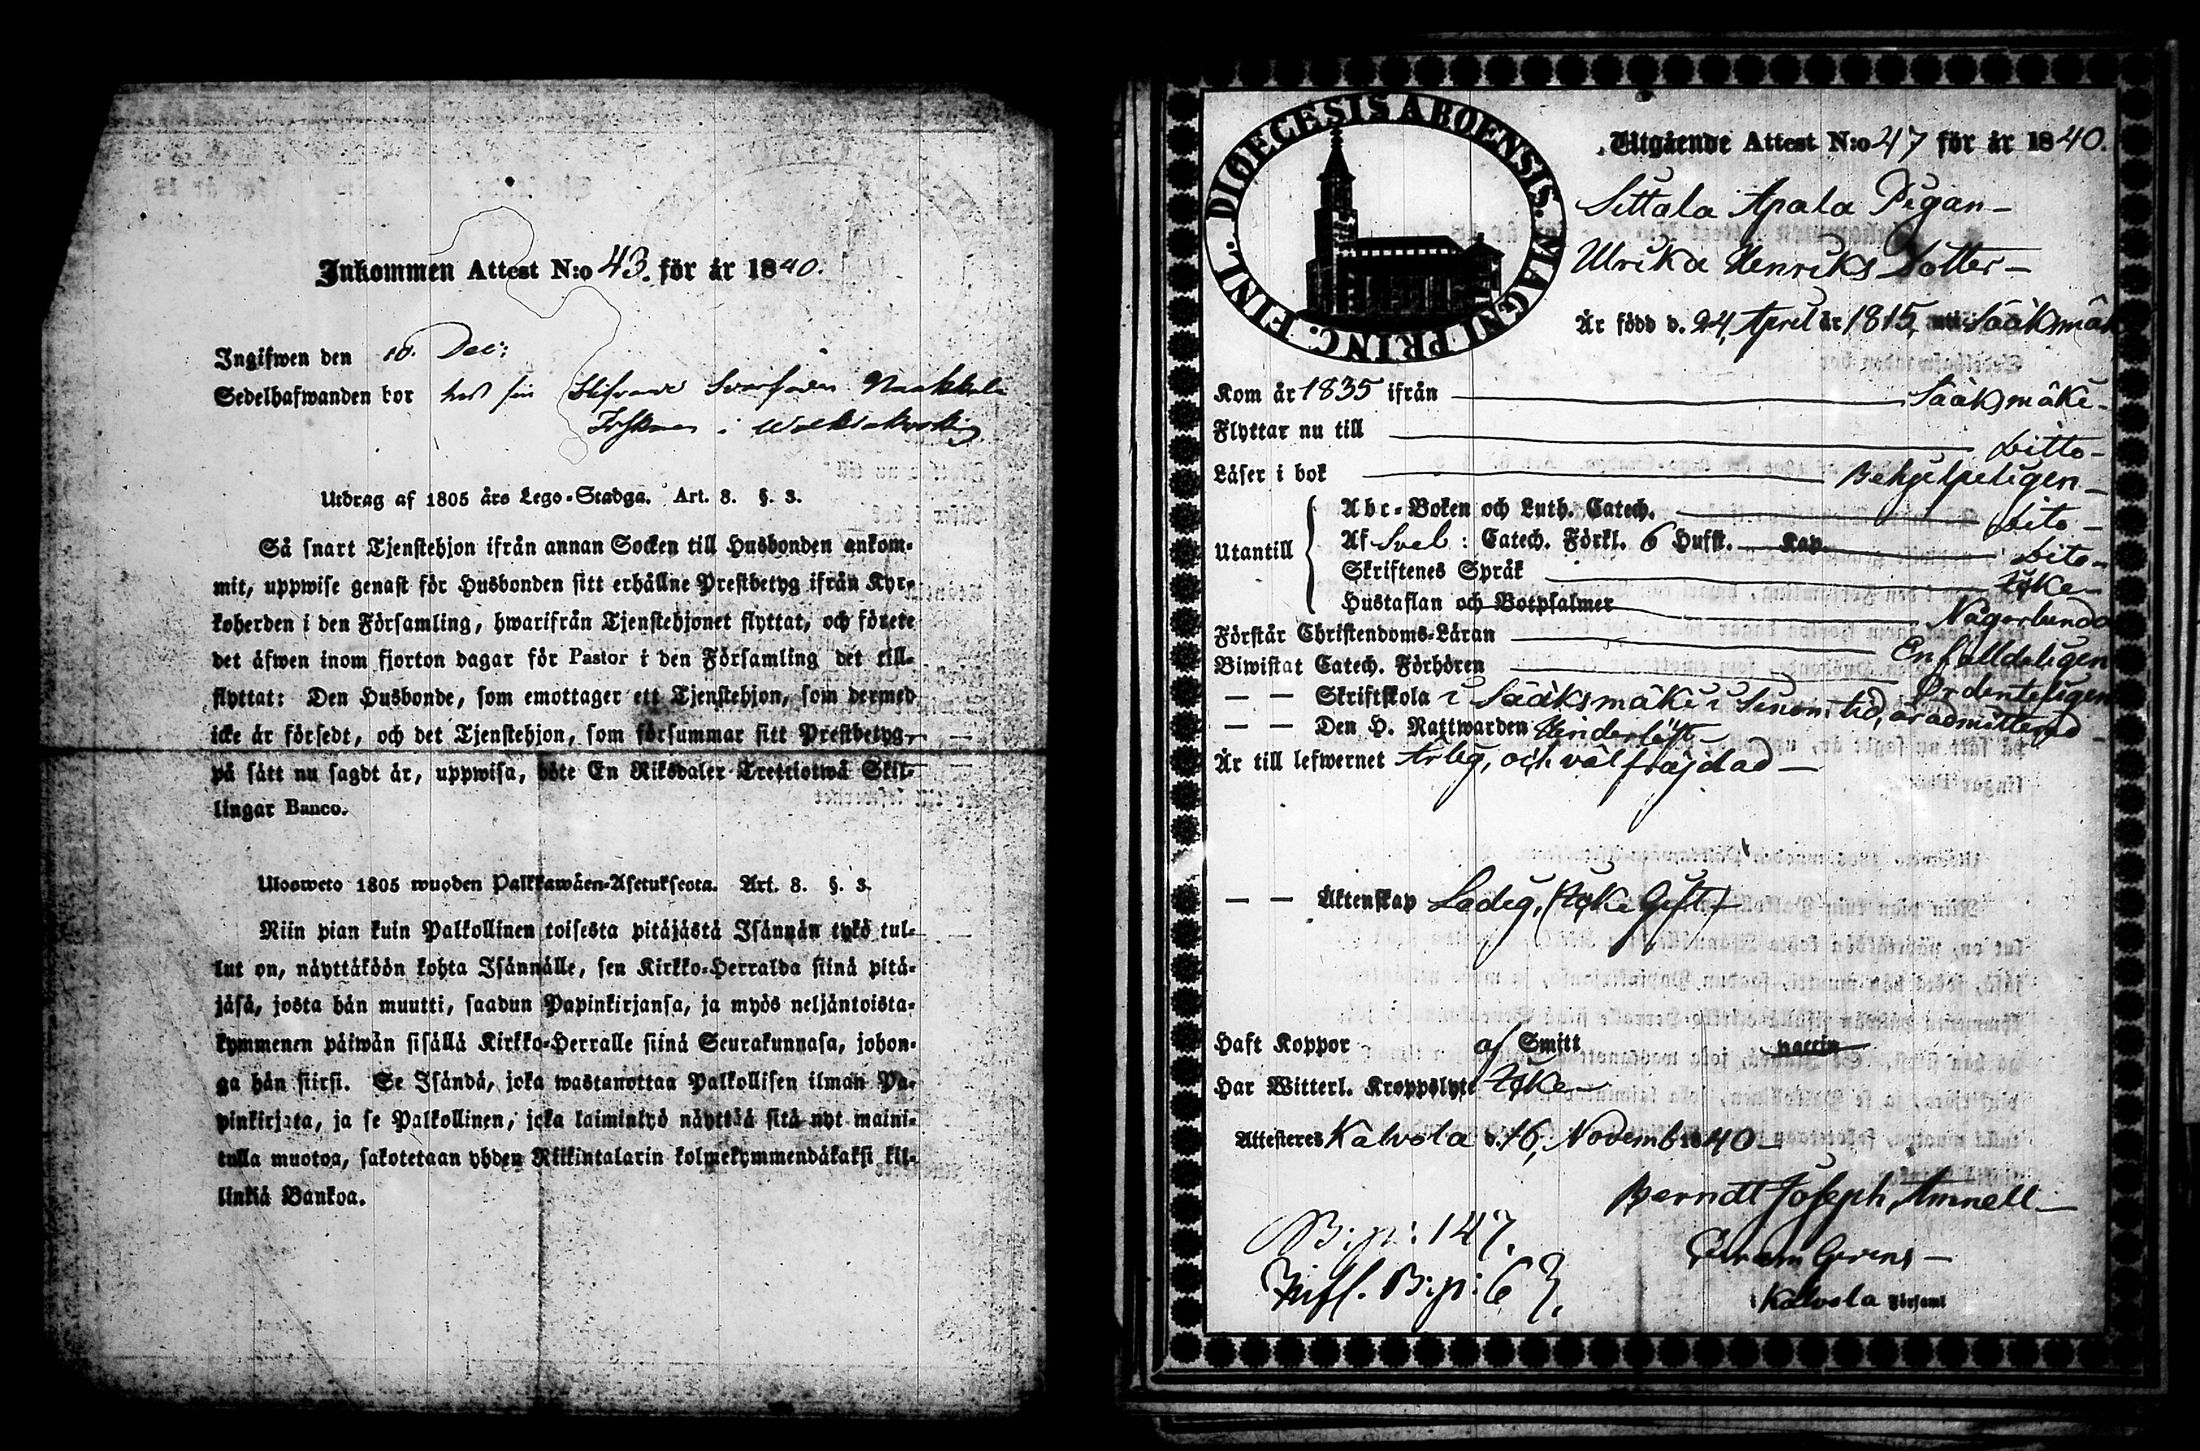 Inkommen Attest N:o 43. för år 1840.
Ingifwen den 10. Dec:
Sedelhafwanden bor hos sin
i
Utdrag af 1805 års Lego-Stadga. Art. 8. §. 3.
Så snart Tjenstehjon ifrån annan Socken till Husbonden ankom-
mit, uppwise genast för Husbonden sitt erhållne Prestbetyg ifrån Kyr-
koherden i den Församling, hwarifrån Tjenstehjonet flyttat, och förete
det äfwen inom fjorton dagar för Pastor i den Församling det till-
flyttat: Den Husbonde, som emottager ett Tjenstehjon, som dermed
icke är försedt, och det Tjenstehjon, som försummar sitt Prestbetyg,
på sätt nu sagdt är, uppwisa, böte En Riksdaler Trettiotwå Skil-
lingar Banco.
Ulosweto 1805 wuoden Palkkawäen-Asetuksesta. Art. 8. §. 3.
Niin pian kuin Palkollinen toisesta pitäjästä Isännän tykö tul-
lut on, näyttäköön kohta Isännälle, sen Kirkko-Herralda siinä pitä-
jäsä, josta hän muutti, saadun Papinkirjansa, ja myös neljäntoista-
kymmenen päiwän sisällä Kirkko-Herralle siinä Seurakunnasa, johon-
ga hän siirsi. Se Isändä, joka wastanottaa Palkollisen ilman Pa-
pinkirjata, ja se Palkollinen, joka laiminlyö näyttää sitä nyt maini-
tulla muotoa, sakotetaan yhden Riikintalarin kolmekymmendäkaksi kil-
linkiä Bankoa.
DIOECESIS ABOENSIS. MAGNI PRINC. FINL.
Utgående Attest N:o 47 för år 1840.
Sittala Apala Pigan
Ulrika Henriks Dotter
Är född d. 24, April år 1815, uti Sääksmäk
Kom år 1835 ifrån Sääksmäki
Flyttar nu till ditto
Läser i bok Behjelpeligen
Utantill
Abc-Boken och Luth. Catech. dito
Af Sveb: Catech. Förkl. 6 Hufst. Kap. dito
Skriftenes Språk Icke
Hustaflan och Botpsalmer Någorlunda
Förstår Christendoms-Läran Enfalldeligen
Biwistat Catech. Förhören Ordenteligen
— — Skriftskola i Sääksmäki i sinom tid, är admitterad
— — Den H. Nattwarden Hinderlöst
Är till lefwernet Ärlig, och väl fräjdad
— — Äktenskap Ledig, (Icke Gift)
Haft Koppor af Smitt vaccin
Har Witterl. Kroppslyte Icke
Attesteres Kalvola d. 16, Novemb 1840
Berndt Joseph Amnell
Curam Gerens
i Kalvola Församl
B: p: 147.
Infl. B: p: 67.